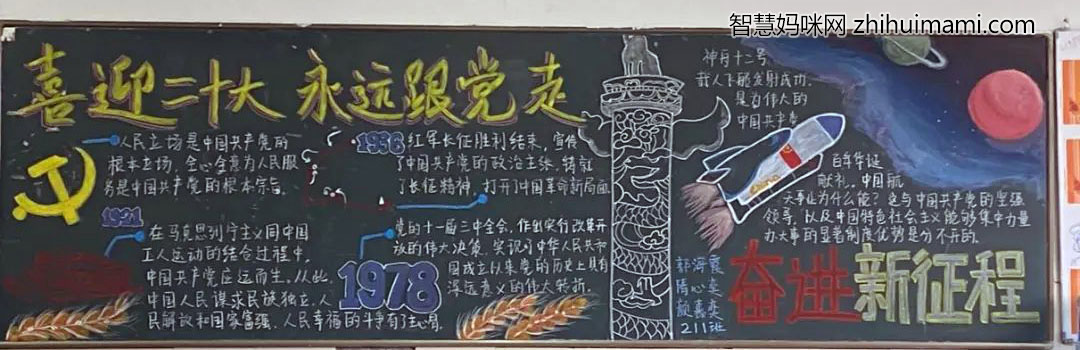 智慧妈咪网 zhihuimami.com
喜迎二十大 永远跟党走
人民立场是中国共产党的
根本立场，全心全意为人民服
务是中国共产党的根本宗旨。
1921
在马克思列宁主义同中国
工人运动的结合过程中，
中国共产党应运而生。从此，
中国人民谋求民族独立、人
民解放和国家富强、人民幸福的斗争有了主心骨。
1936
红军长征胜利结束，宣传
了中国共产党的政治主张，铸就
了长征精神，打开了中国革命新局面
党的十一届三中全会，作出实行改革开
放的伟大决策，实现了中华人民共和
国成立以来党的历史上具有
深远意义的伟大转折。
1978
神舟十二号
载人飞船发射成功，
是为伟大的
中国共产党
百年华诞
献礼。中国航
天事业为什么能？这与中国共产党的坚强
领导，以及中国特色社会主义能够集中力量
办大事的显著制度优势是分不开的。
China
211班
奋进新征程